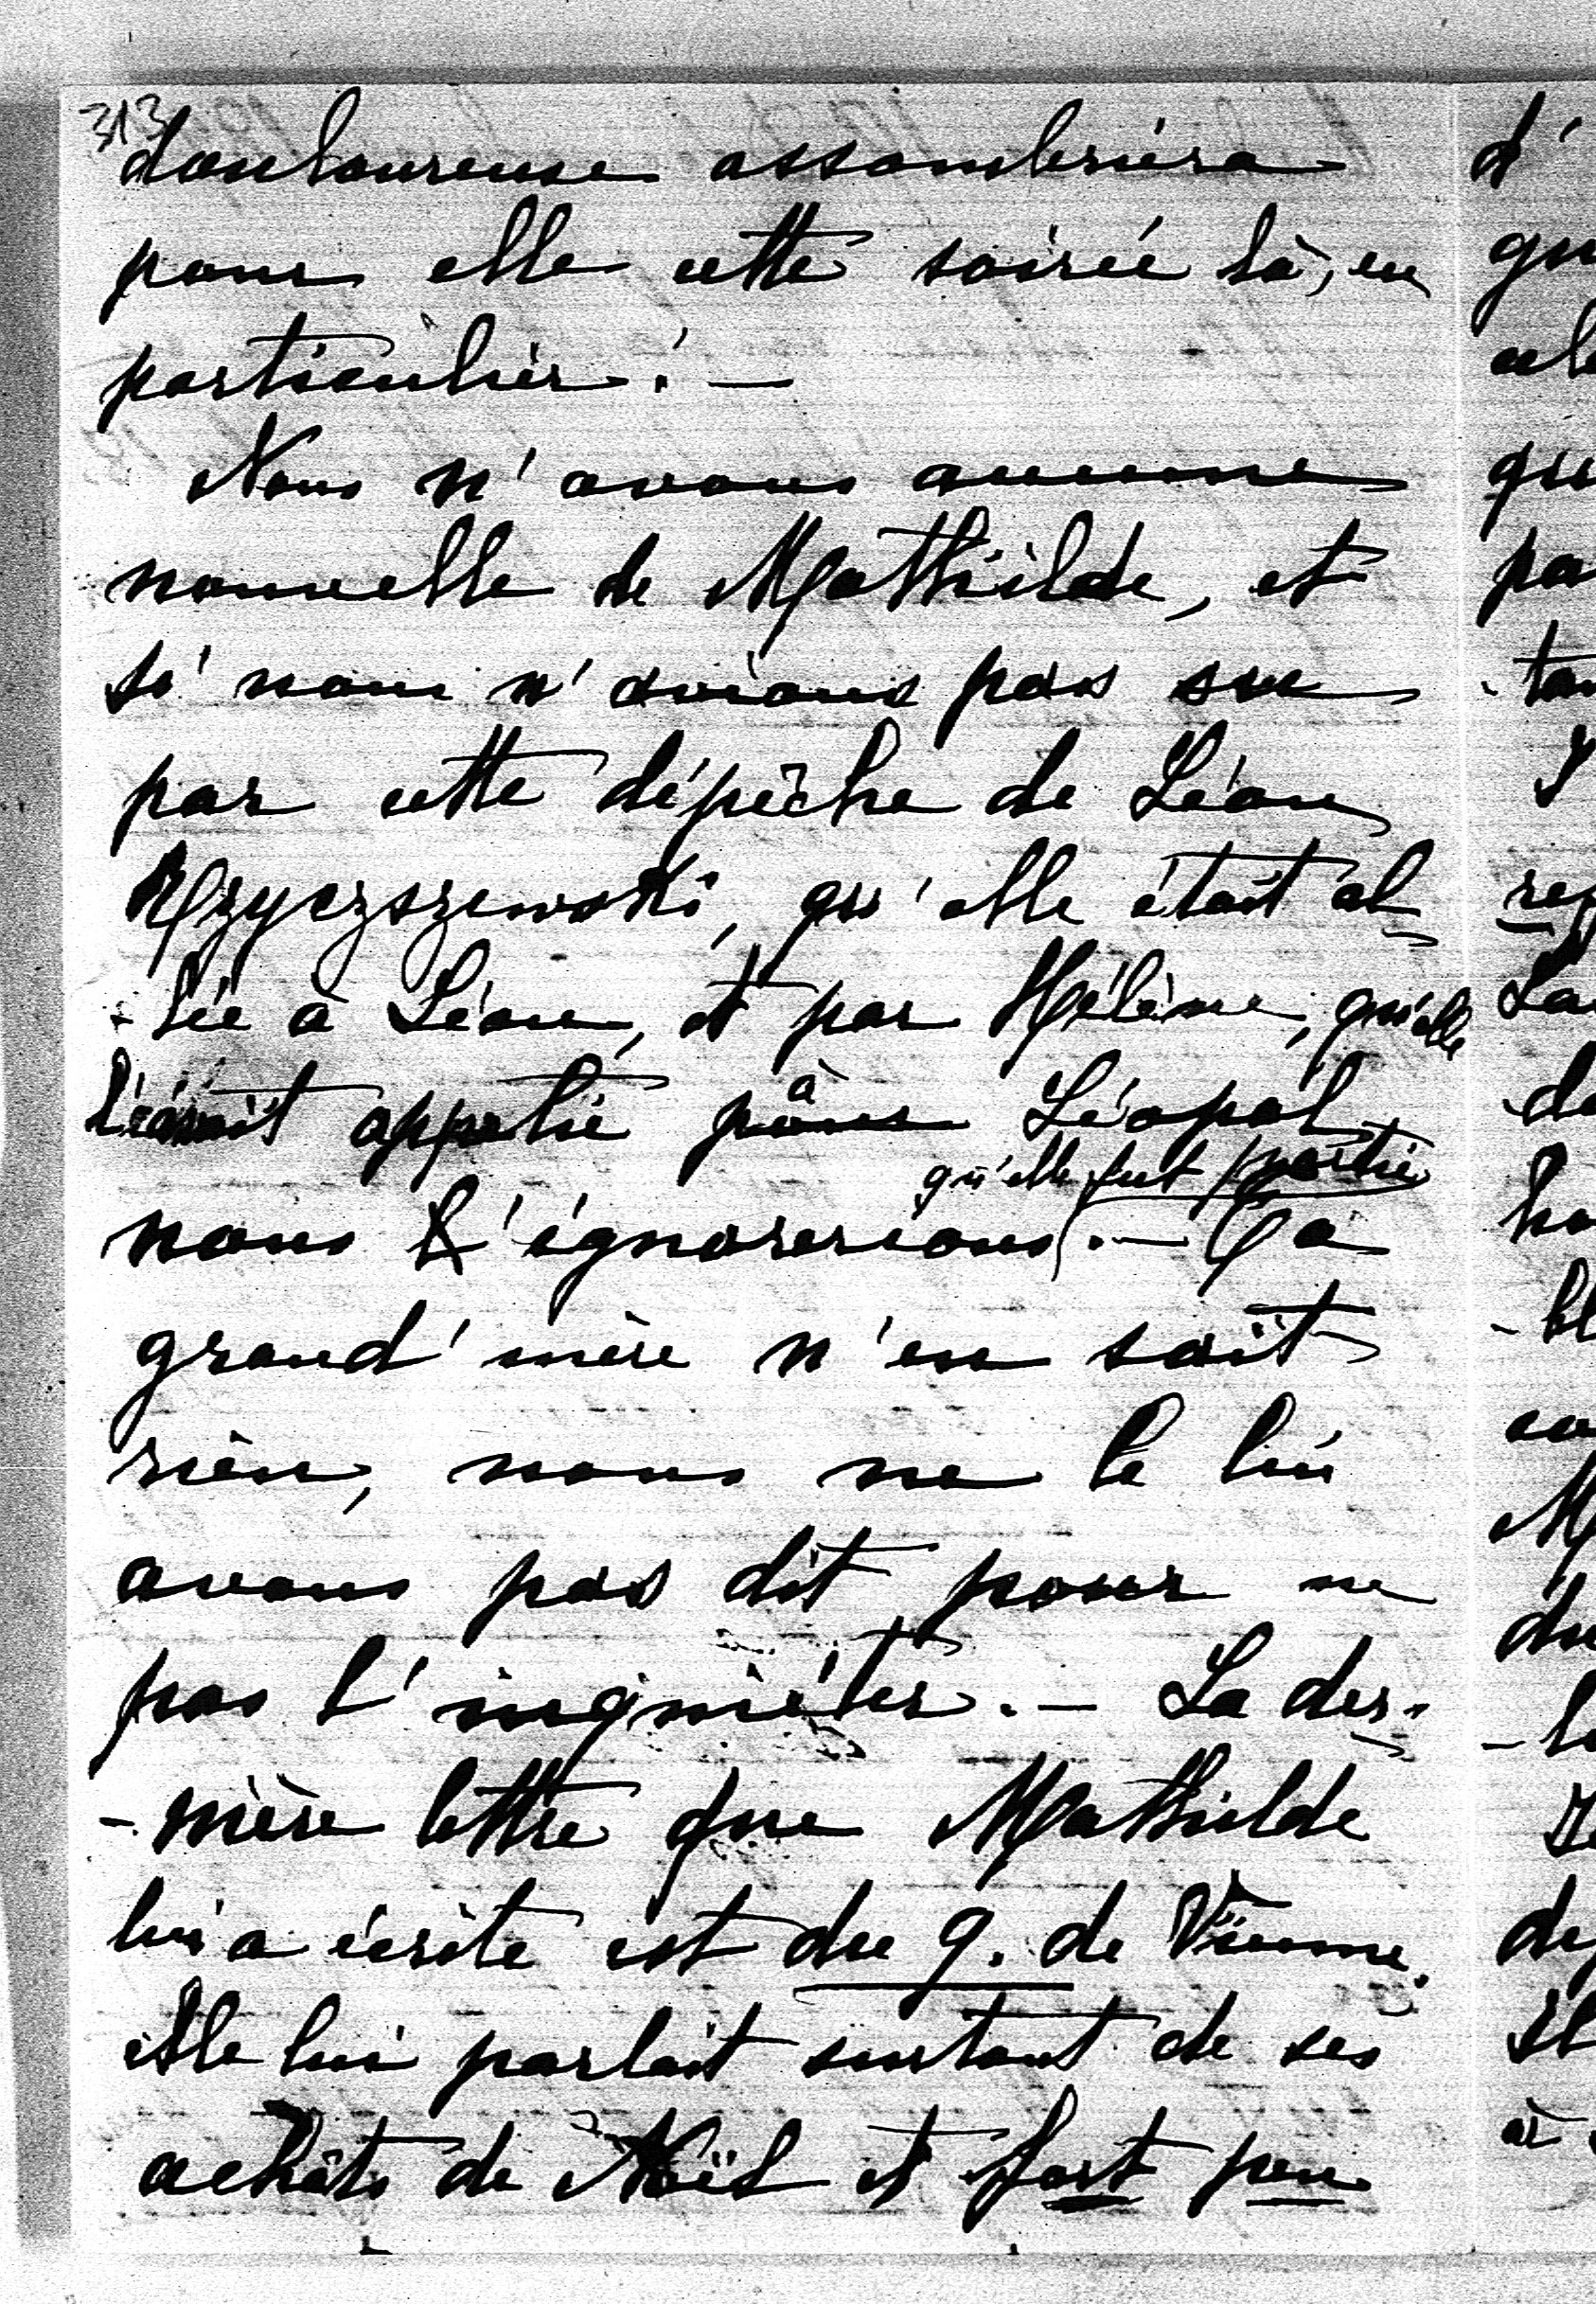 313
douloureuse assombrira
pour elle cette soirée là, en
particulier! —
Nous n'avons aucune
nouvelle de Mathilde, et
si nous n'avions pas su
par cette dépêche de Léon
Rzyczszewski, qu'elle était al-
-lée à Léon, et par Hélène, qu'elle
l'avait appelé à Léopol
qu'elle fut partie
nous l'ignorerions. — Ça
grand'mère n'en sait
rien, nous ne le lui
avons pas dit pour ne
pas l'inquiéter. — La der-
-nière lettre que Mathilde
lui a écrite est du 9. de Vienne.
Elle lui parlait surtout de ses
achâts de Noël et fort peu
d'